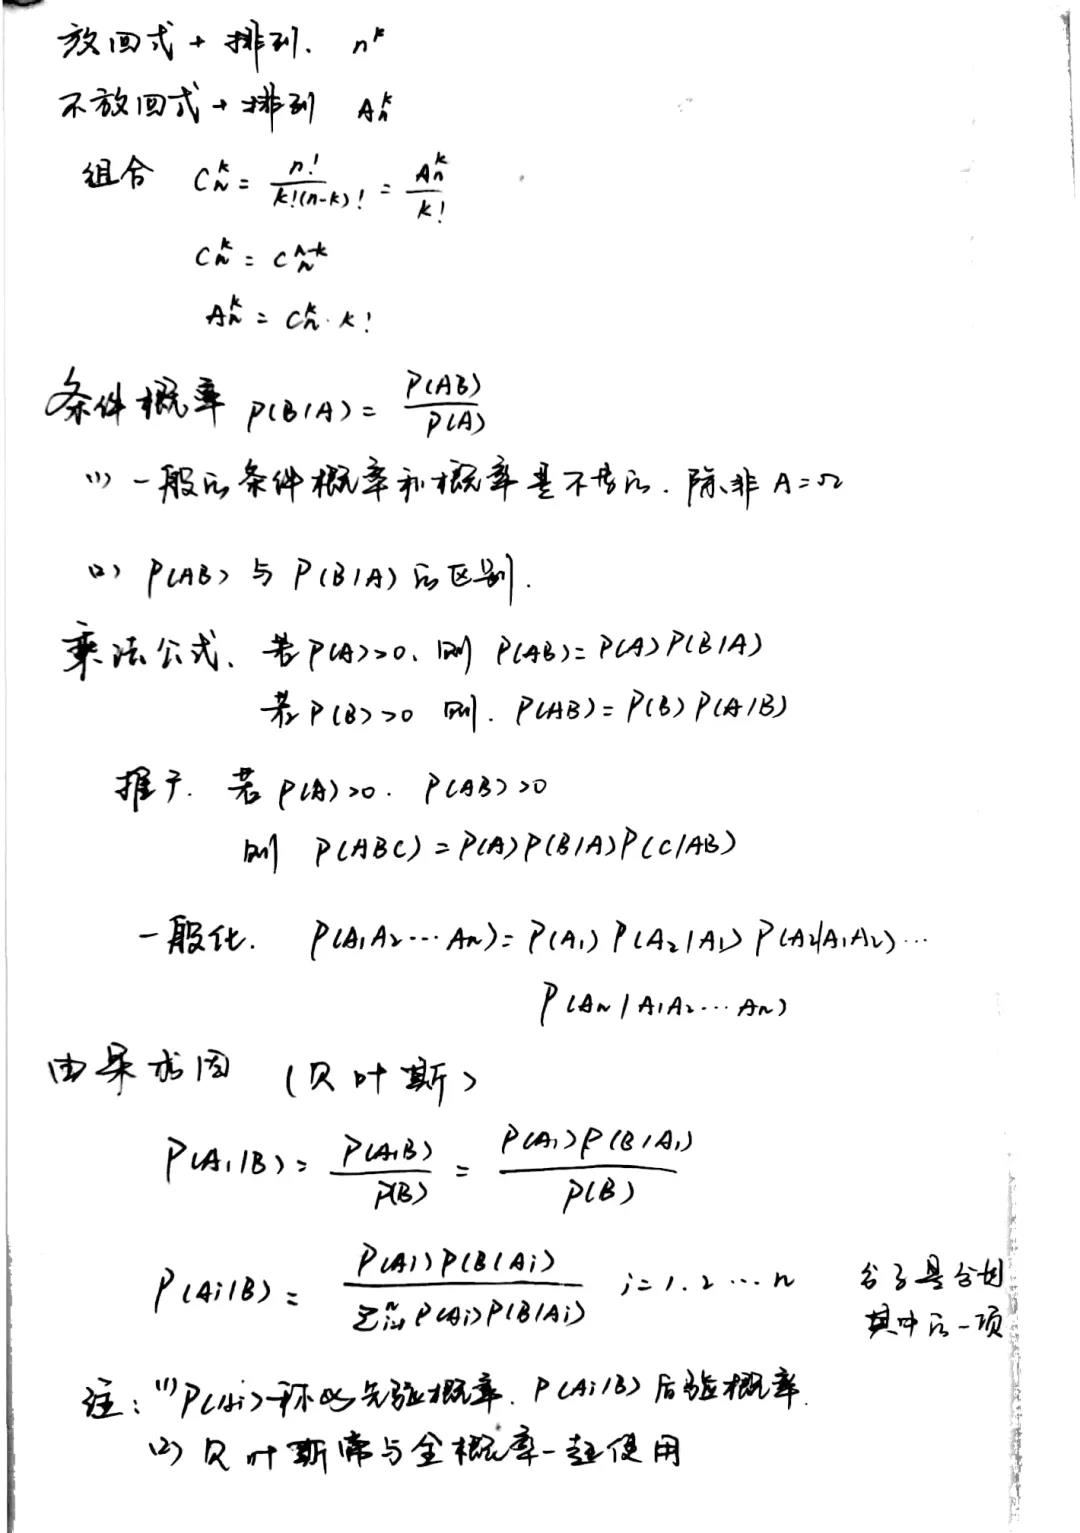 放回式 + 排列. n^k
不放回式 + 排列 A_n^k
组合 C_n^k = n!/(k!(n-k)!) = A_n^k/k!
C_n^k = C_n^{n-k}
A_n^k = C_n^k · k!
条件概率 P(B|A) = P(AB)/P(A)
(1) 一般的条件概率和概率是不等的. 除非 A=Ω
(2) P(AB) 与 P(B|A) 的区别.
乘法公式. 若P(A)>0. 则 P(AB)=P(A)P(B|A)
若P(B)>0 则. P(AB)=P(B)P(A|B)
推广. 若 P(A)>0. P(AB)>0
则 P(ABC)=P(A)P(B|A)P(C|AB)
一般化. P(A₁A₂⋯An)=P(A₁)P(A₂|A₁)P(A₂|A₁A₂)⋯
P(An|A₁A₂⋯An)
由果求因 (贝叶斯)
P(A₁|B) = P(A₁B)/P(B) = P(A₁)P(B|A₁)/P(B)
P(Ai|B) = P(Ai)P(B|Ai)/∑_{i=1}^n P(Ai)P(B|Ai) i=1.2⋯n 分子是分划
其中的一项
注: (1) P(Ai)称为先验概率. P(Ai|B)后验概率.
(2) 贝叶斯常与全概率一起使用